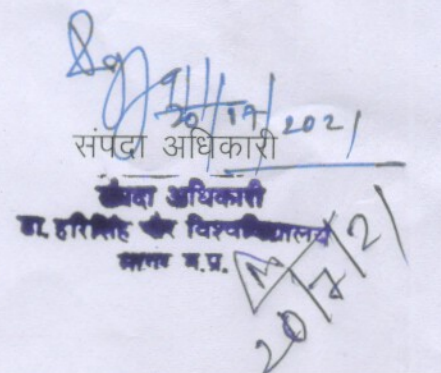 20/17/2021
संपदा अधिकारी
संपदा अधिकारी
डा. हरीसिंह गौर विश्वविद्यालय
सागर म.प्र.
20/7/21